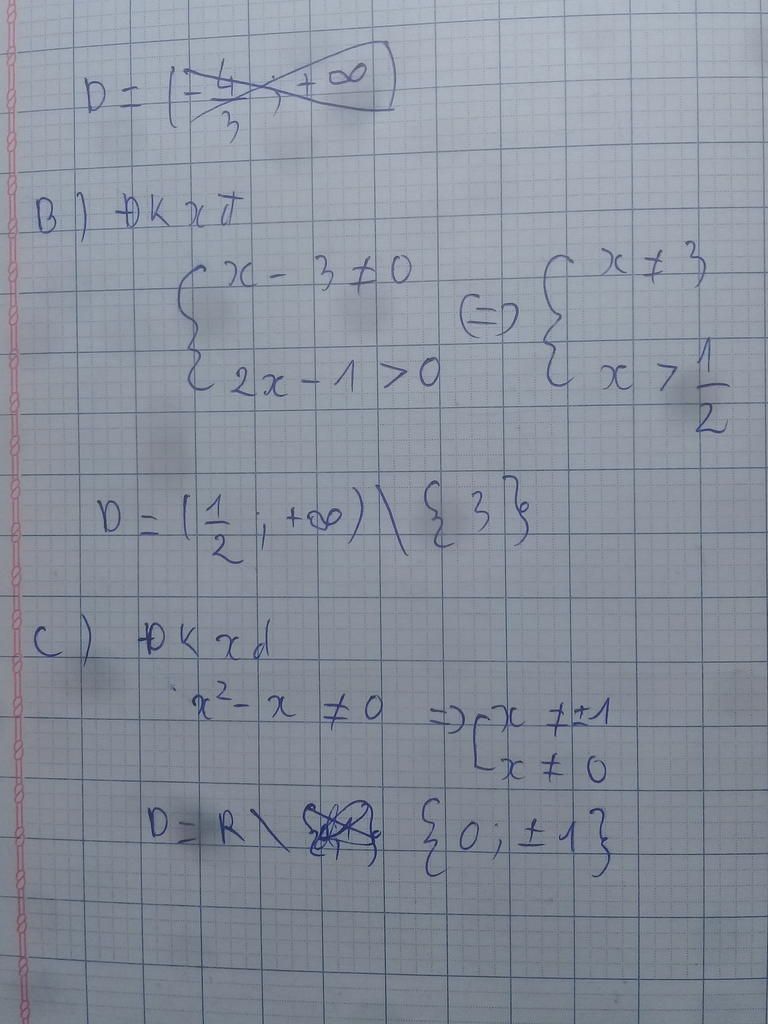 D = (-4/3; +∞)
B) ĐKXĐ
{ x - 3 ≠ 0 <=> { x ≠ 3
{ 2x - 1 > 0 { x > 1/2
D = (1/2; +∞) \ { 3 }
C) ĐK xđ
x² - x ≠ 0 => [ x ≠ ±1
[ x ≠ 0
D = R \ { 0 ; ±1 }